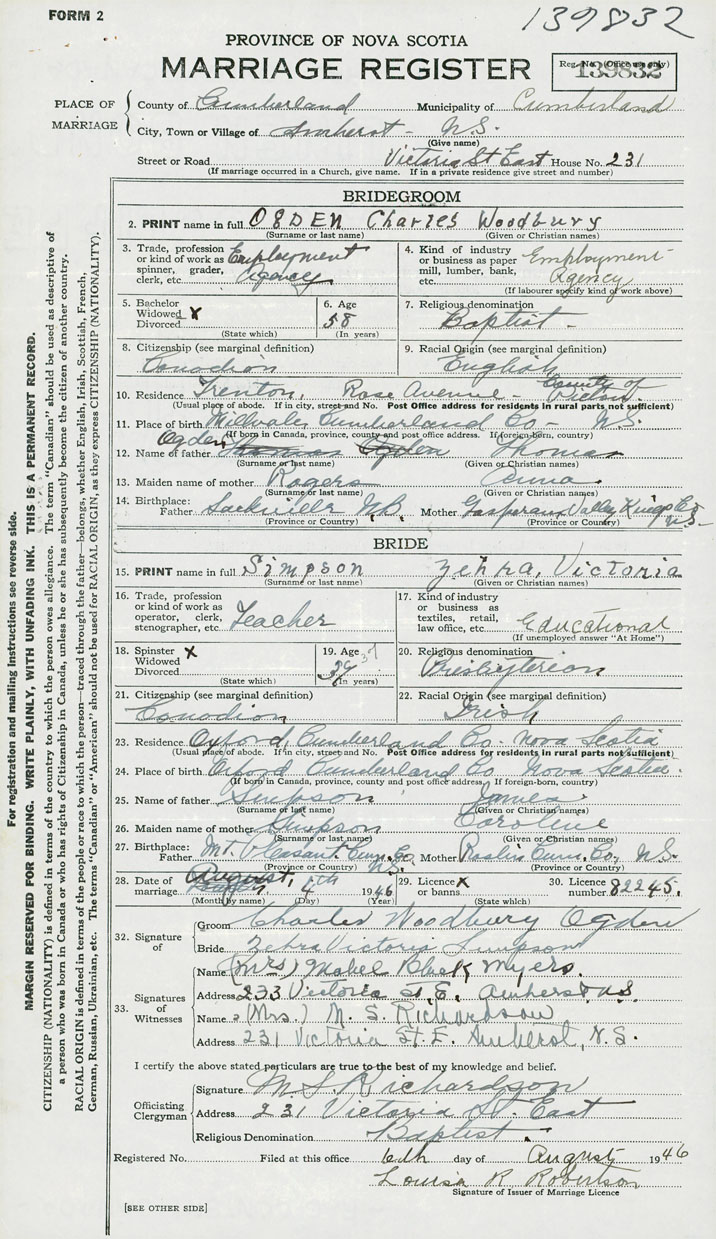 FORM 2
139832
PROVINCE OF NOVA SCOTIA
MARRIAGE REGISTER
Reg. No. (Office use only)
139832
PLACE OF MARRIAGE
County of Cumberland Municipality of Cumberland
City, Town or Village of Amherst - N.S.
(Give name)
Street or Road Victoria St East House No. 231
(If marriage occurred in a Church, give name. If in a private residence give street and number)
BRIDEGROOM
2. PRINT name in full OGDEN Charles Woodbury
(Surname or last name) (Given or Christian names)
3. Trade, profession or kind of work as spinner, grader, clerk, etc. Employment Agency
4. Kind of industry or business as paper mill, lumber, bank, etc. Employment Agency
(If labourer specify kind of work above)
5. Bachelor Widowed X Divorced
(State which)
6. Age 58
(In years)
7. Religious denomination Baptist -
8. Citizenship (see marginal definition) Canadian
9. Racial Origin (see marginal definition) English
10. Residence Trenton, Rose Avenue - County of Pictou.
(Usual place of abode. If in city, street and No. Post Office address for residents in rural parts not sufficient)
11. Place of birth Millvale Cumberland Co - N.S.
(If born in Canada, province, county and post office address. If foreign-born, country)
12. Name of father Ogden Thomas
(Surname or last name) (Given or Christian names)
13. Maiden name of mother Rogers Anna
(Surname or last name) (Given or Christian names)
14. Birthplace: Father Sackville N.B. Mother Gaspereau Valley Kings Co N.S.
(Province or Country) (Province or Country)
BRIDE
15. PRINT name in full Simpson Zehra, Victoria
(Surname or last name) (Given or Christian names)
16. Trade, profession or kind of work as operator, clerk, stenographer, etc. Teacher
17. Kind of industry or business as textiles, retail, law office, etc. Educational
(If unemployed answer "At Home")
18. Spinster X Widowed Divorced
(State which)
19. Age 39
(In years)
20. Religious denomination Presbyterian
21. Citizenship (see marginal definition) Canadian
22. Racial Origin (see marginal definition) Irish
23. Residence Oxford, Cumberland Co. Nova Scotia
(Usual place of abode. If in city, street and No. Post Office address for residents in rural parts not sufficient)
24. Place of birth Oxford Cumberland Co Nova Scotia.
(If born in Canada, province, county and post office address. If foreign-born, country)
25. Name of father Simpson James
(Surname or last name) (Given or Christian names)
26. Maiden name of mother Simpson Caroline
(Surname or last name) (Given or Christian names)
27. Birthplace: Father Mt. Pleasant Cum. Co. N.S. Mother Roslin Cum. Co. N.S.
(Province or Country) (Province or Country)
28. Date of marriage August, 4th 1946
(Month by name) (Day) (Year)
29. Licence X or banns
(State which)
30. Licence number 82245.
32. Signature of
Groom Charles Woodbury Ogden
Bride Zehra Victoria Simpson
33. Signatures of Witnesses
Name (Mrs) Mabel Black Myers.
Address 233 Victoria St. E. Amherst N.S.
Name (Mrs.) M. S. Richardson
Address 231 Victoria St. E. Amherst, N.S.
I certify the above stated particulars are true to the best of my knowledge and belief.
Officiating Clergyman
Signature M. S. Richardson
Address 231 Victoria St. East
Religious Denomination Baptist.
Registered No. Filed at this office 6th day of August 1946
Louisa R. Robertson
Signature of Issuer of Marriage Licence
[SEE OTHER SIDE]
For registration and mailing instructions see reverse side.
MARGIN RESERVED FOR BINDING. WRITE PLAINLY, WITH UNFADING INK. THIS IS A PERMANENT RECORD.
CITIZENSHIP (NATIONALITY) is defined in terms of the country to which the person owes allegiance. The term "Canadian" should be used as descriptive of
a person who was born in Canada or who has rights of Citizenship in Canada, unless he or she has subsequently become the citizen of another country.
RACIAL ORIGIN is defined in terms of the people or race to which the person—traced through the father—belongs, whether English, Irish, Scottish, French,
German, Russian, Ukrainian, etc. The terms "Canadian" or "American" should not be used for RACIAL ORIGIN, as they express CITIZENSHIP (NATIONALITY).